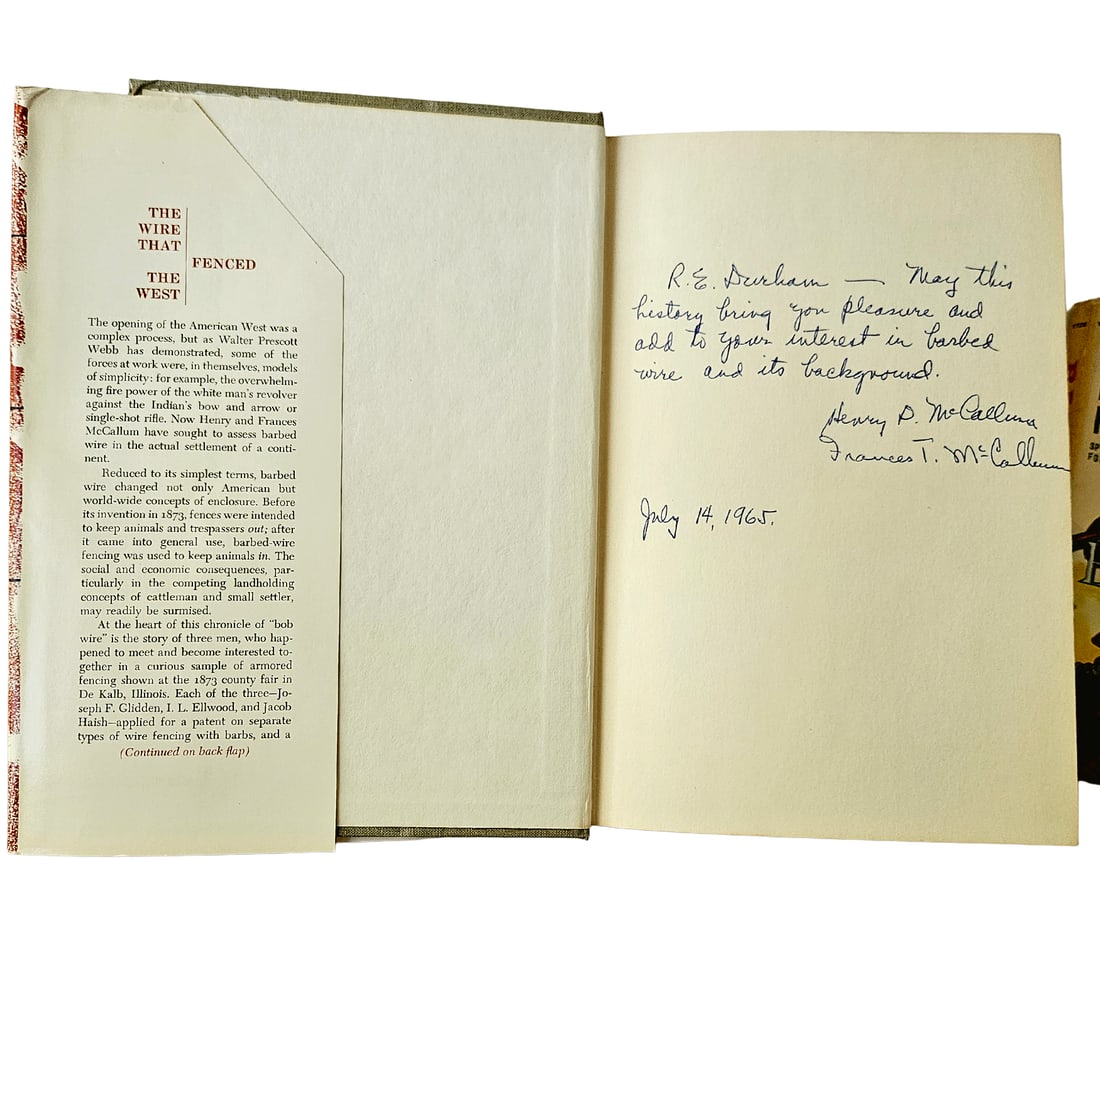 THE
WIRE
THAT
FENCED
THE
WEST
The opening of the American West was a
complex process, but as Walter Prescott
Webb has demonstrated, some of the
forces at work were, in themselves, models
of simplicity: for example, the overwhelm-
ing fire power of the white man's revolver
against the Indian's bow and arrow or
single-shot rifle. Now Henry and Frances
McCallum have sought to assess barbed
wire in the actual settlement of a conti-
nent.
Reduced to its simplest terms, barbed
wire changed not only American but
world-wide concepts of enclosure. Before
its invention in 1873, fences were intended
to keep animals and trespassers out; after
it came into general use, barbed-wire
fencing was used to keep animals in. The
social and economic consequences, par-
ticularly in the competing landholding
concepts of cattleman and small settler,
may readily be surmised.
At the heart of this chronicle of "bob
wire" is the story of three men, who hap-
pened to meet and become interested to-
gether in a curious sample of armored
fencing shown at the 1873 county fair in
De Kalb, Illinois. Each of the three—Jo-
seph F. Glidden, I. L. Ellwood, and Jacob
Haish—applied for a patent on separate
types of wire fencing with barbs, and a
(Continued on back flap)
R.E. Durham — May this
history bring you pleasure and
add to your interest in barbed
wire and its background.
Henry D. McCallum
Frances T. McCallum
July 14, 1965.